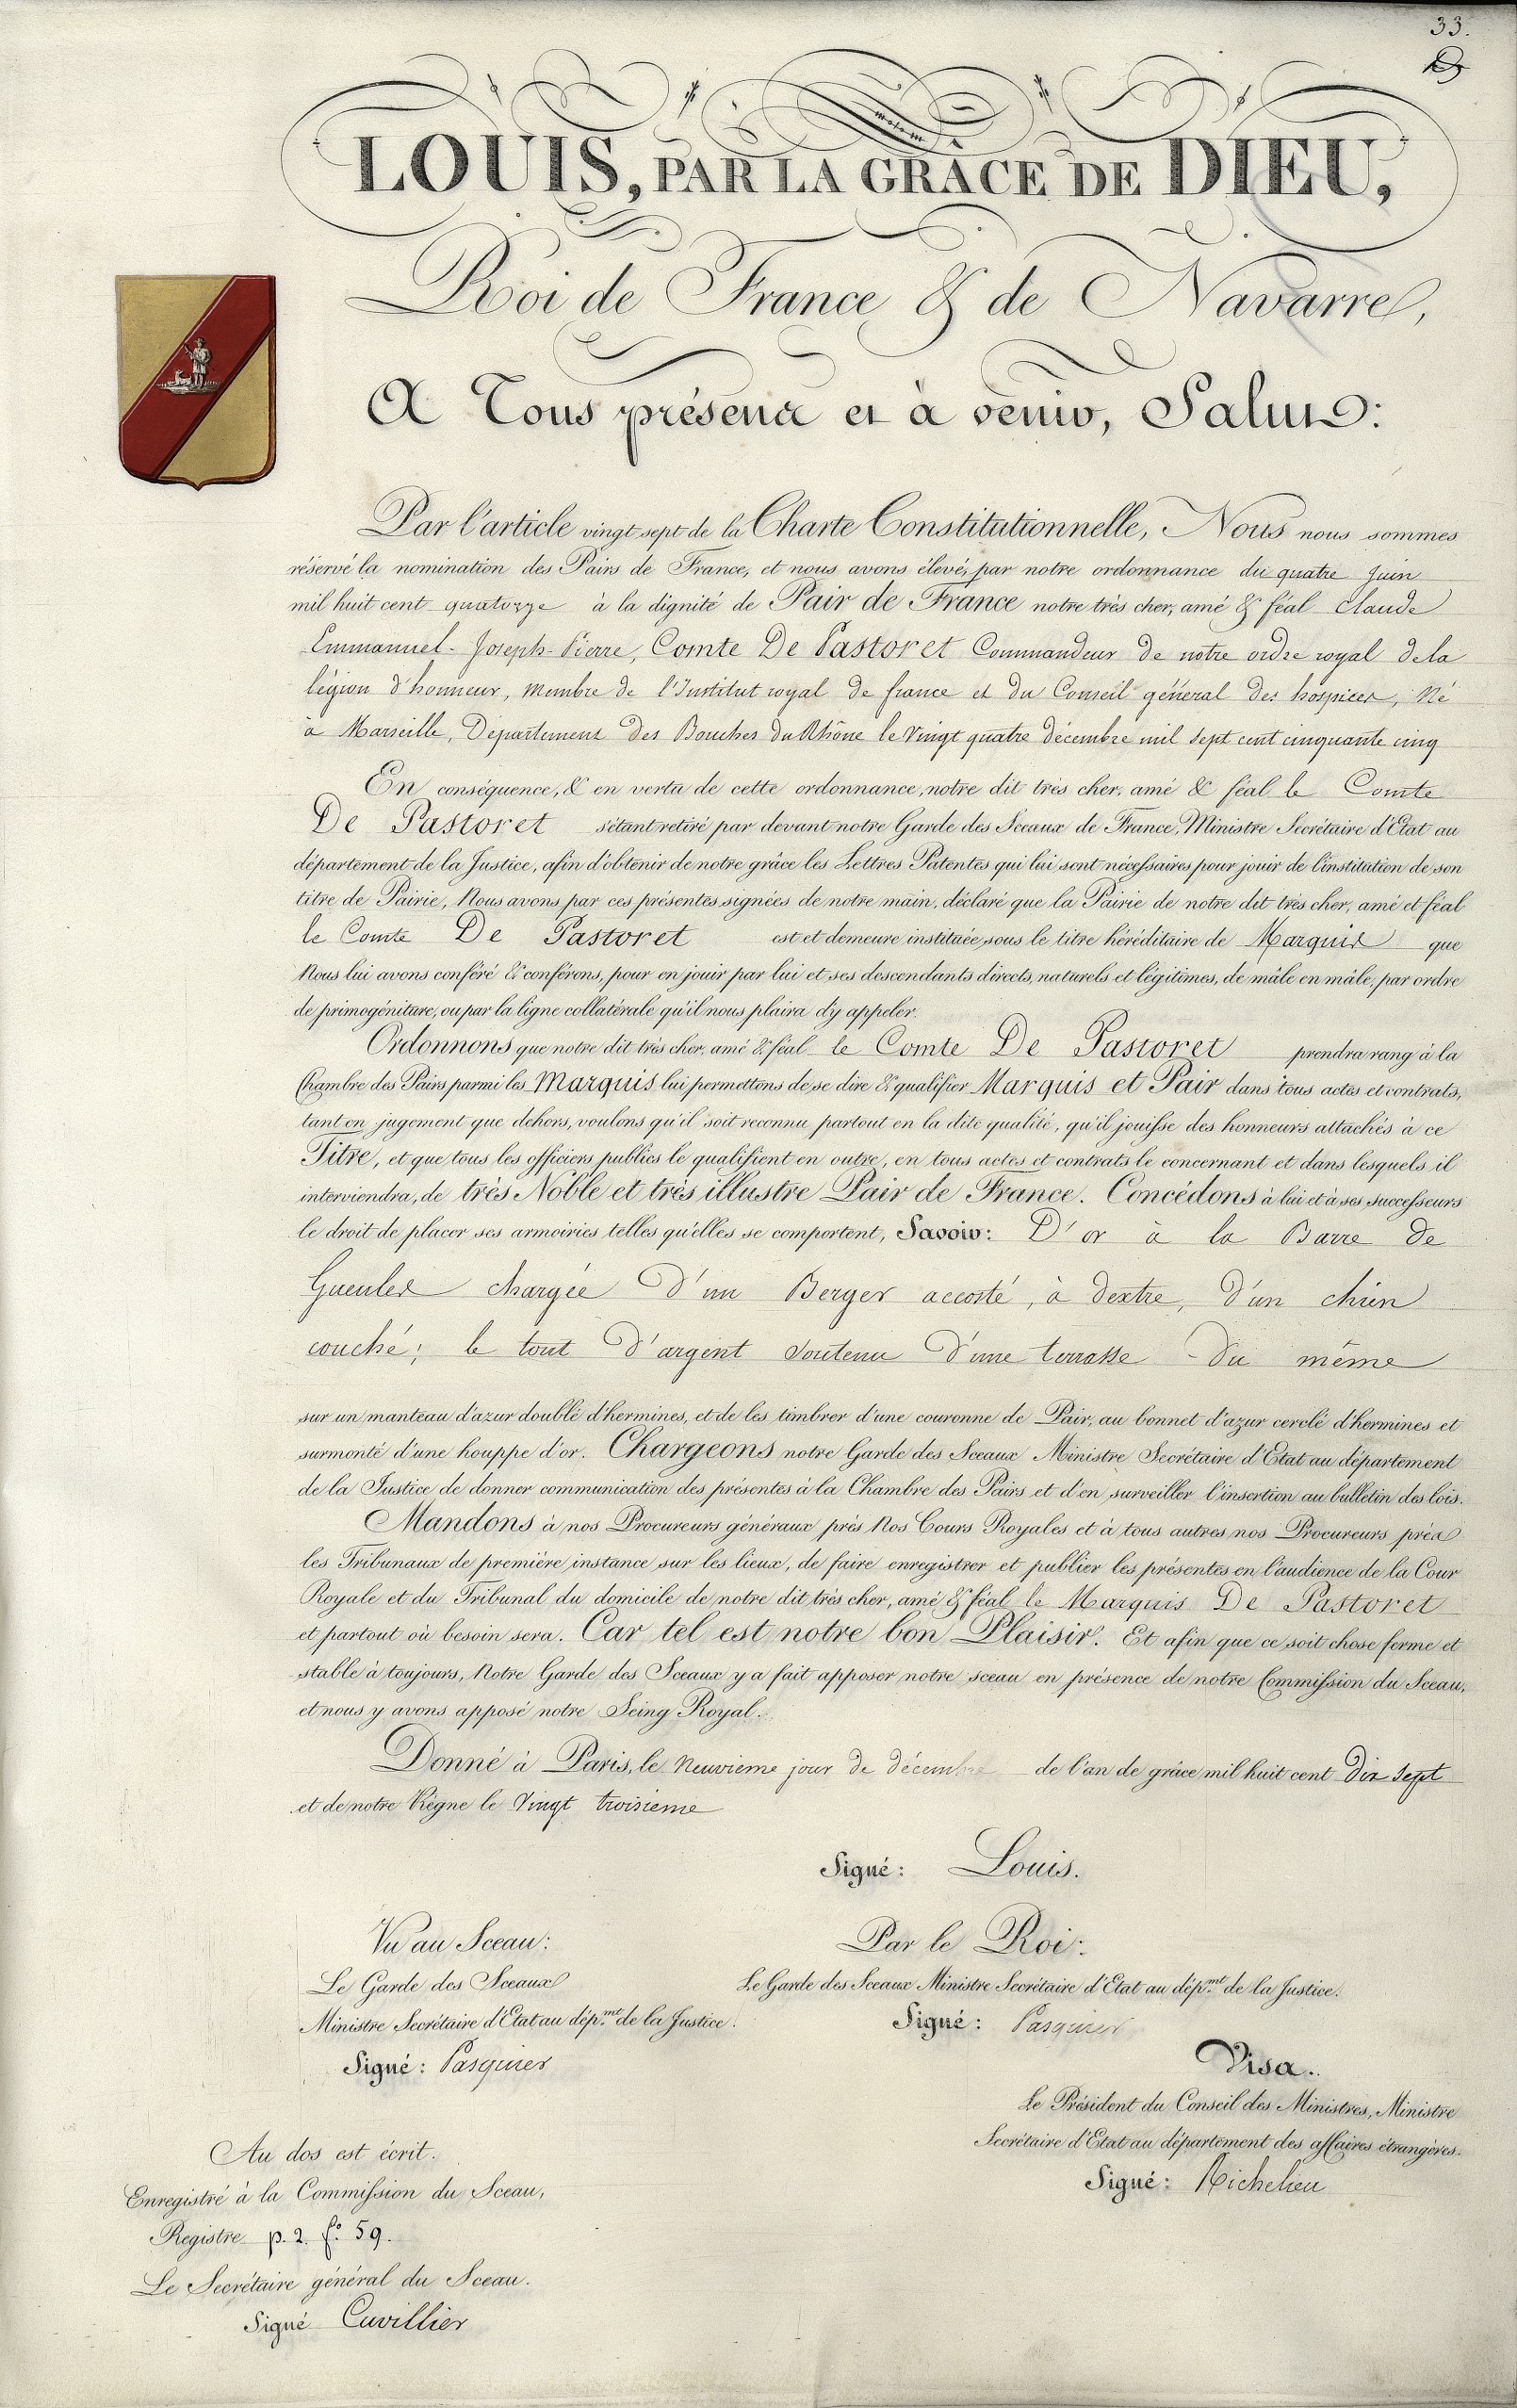 33.
LOUIS, PAR LA GRÂCE DE DIEU,
Roi de France & de Navarre,
A Tous présens et à venir, Salut:
Par l'article vingt sept de la Charte Constitutionnelle, Nous nous sommes
réservé la nomination des Pairs de France, et nous avons élevé, par notre ordonnance du quatre Juin
mil huit cent quatorze à la dignité de Pair de France notre très cher, amé & féal Claude
Emmanuel-Joseph-Pierre, Comte De Pastoret Commandeur de notre ordre royal de la
légion d'honneur, membre de l'Institut royal de france et du Conseil général des hospices, Né
à Marseille, Département des Bouches du Rhône le Vingt quatre décembre mil sept cent cinquante cinq
En conséquence, & en vertu de cette ordonnance, notre dit très cher, amé & féal le Comte
De Pastoret s'étant retiré par devant notre Garde des Sceaux de France, Ministre Secrétaire d'Etat au
département de la Justice, afin d'obtenir de notre grâce les Lettres Patentes qui lui sont nécessaires pour jouir de l'institution de son
titre de Pairie, Nous avons par ces présentes signées de notre main, déclaré que la Pairie de notre dit très cher, amé et féal
le Comte De Pastoret est et demeure instituée sous le titre héréditaire de Marquis que
Nous lui avons conféré & conférons, pour en jouir par lui et ses descendants directs, naturels et légitimes, de mâle en mâle, par ordre
de primogéniture, ou par la ligne collatérale qu'il nous plaira d'y appeler.
Ordonnons que notre dit très cher, amé & féal le Comte De Pastoret prendra rang à la
Chambre des Pairs parmi les Marquis lui permettons de se dire & qualifier Marquis et Pair dans tous actes et contrats,
tant en jugement que dehors, voulons qu'il soit reconnu partout en la dite qualité, qu'il jouisse des honneurs attachés à ce
Titre, et que tous les officiers publics le qualifient en outre, en tous actes et contrats le concernant et dans lesquels il
interviendra, de très Noble et très illustre Pair de France. Concédons à lui et à ses successeurs
le droit de placer ses armoiries telles qu'elles se comportent, Savoir: D'or à la Barre de
Gueules chargée d'un Berger accosté, à dextre, d'un chien
couché; le tout d'argent soutenu d'une terrasse du même
sur un manteau d'azur doublé d'hermines, et de les timbrer d'une couronne de Pair, au bonnet d'azur cerclé d'hermines et
surmonté d'une houppe d'or. Chargeons notre Garde des Sceaux Ministre Secrétaire d'Etat au département
de la Justice de donner communication des présentes à la Chambre des Pairs et d'en surveiller l'insertion au bulletin des lois.
Mandons à nos Procureurs généraux près Nos Cours Royales et à tous autres nos Procureurs près
les Tribunaux de première instance sur les lieux, de faire enregistrer et publier les présentes en l'audience de la Cour
Royale et du Tribunal du domicile de notre dit très cher, amé & féal le Marquis De Pastoret
et partout où besoin sera. Car tel est notre bon Plaisir. Et afin que ce soit chose ferme et
stable à toujours, Notre Garde des Sceaux y a fait apposer notre sceau en présence de notre Commission du Sceau,
et nous y avons apposé notre Seing Royal.
Donné à Paris, le neuvieme jour de décembre de l'an de grâce mil huit cent dix sept
et de notre Règne le Vingt troisieme
Signé: Louis.
Vu au Sceau:
Le Garde des Sceaux
Ministre Secrétaire d'Etat au dép.mt de la Justice.
Signé: Pasquier
Par le Roi:
Le Garde des Sceaux Ministre Secrétaire d'Etat au dép.mt de la Justice.
Signé: Pasquier
Visa.
Le Président du Conseil des Ministres, Ministre
Secrétaire d'Etat au département des affaires étrangères.
Signé: Richelieu
Au dos est écrit.
Enregistré à la Commission du Sceau,
Registre p. 2. f.o 59.
Le Secrétaire général du Sceau.
Signé Cuvillier